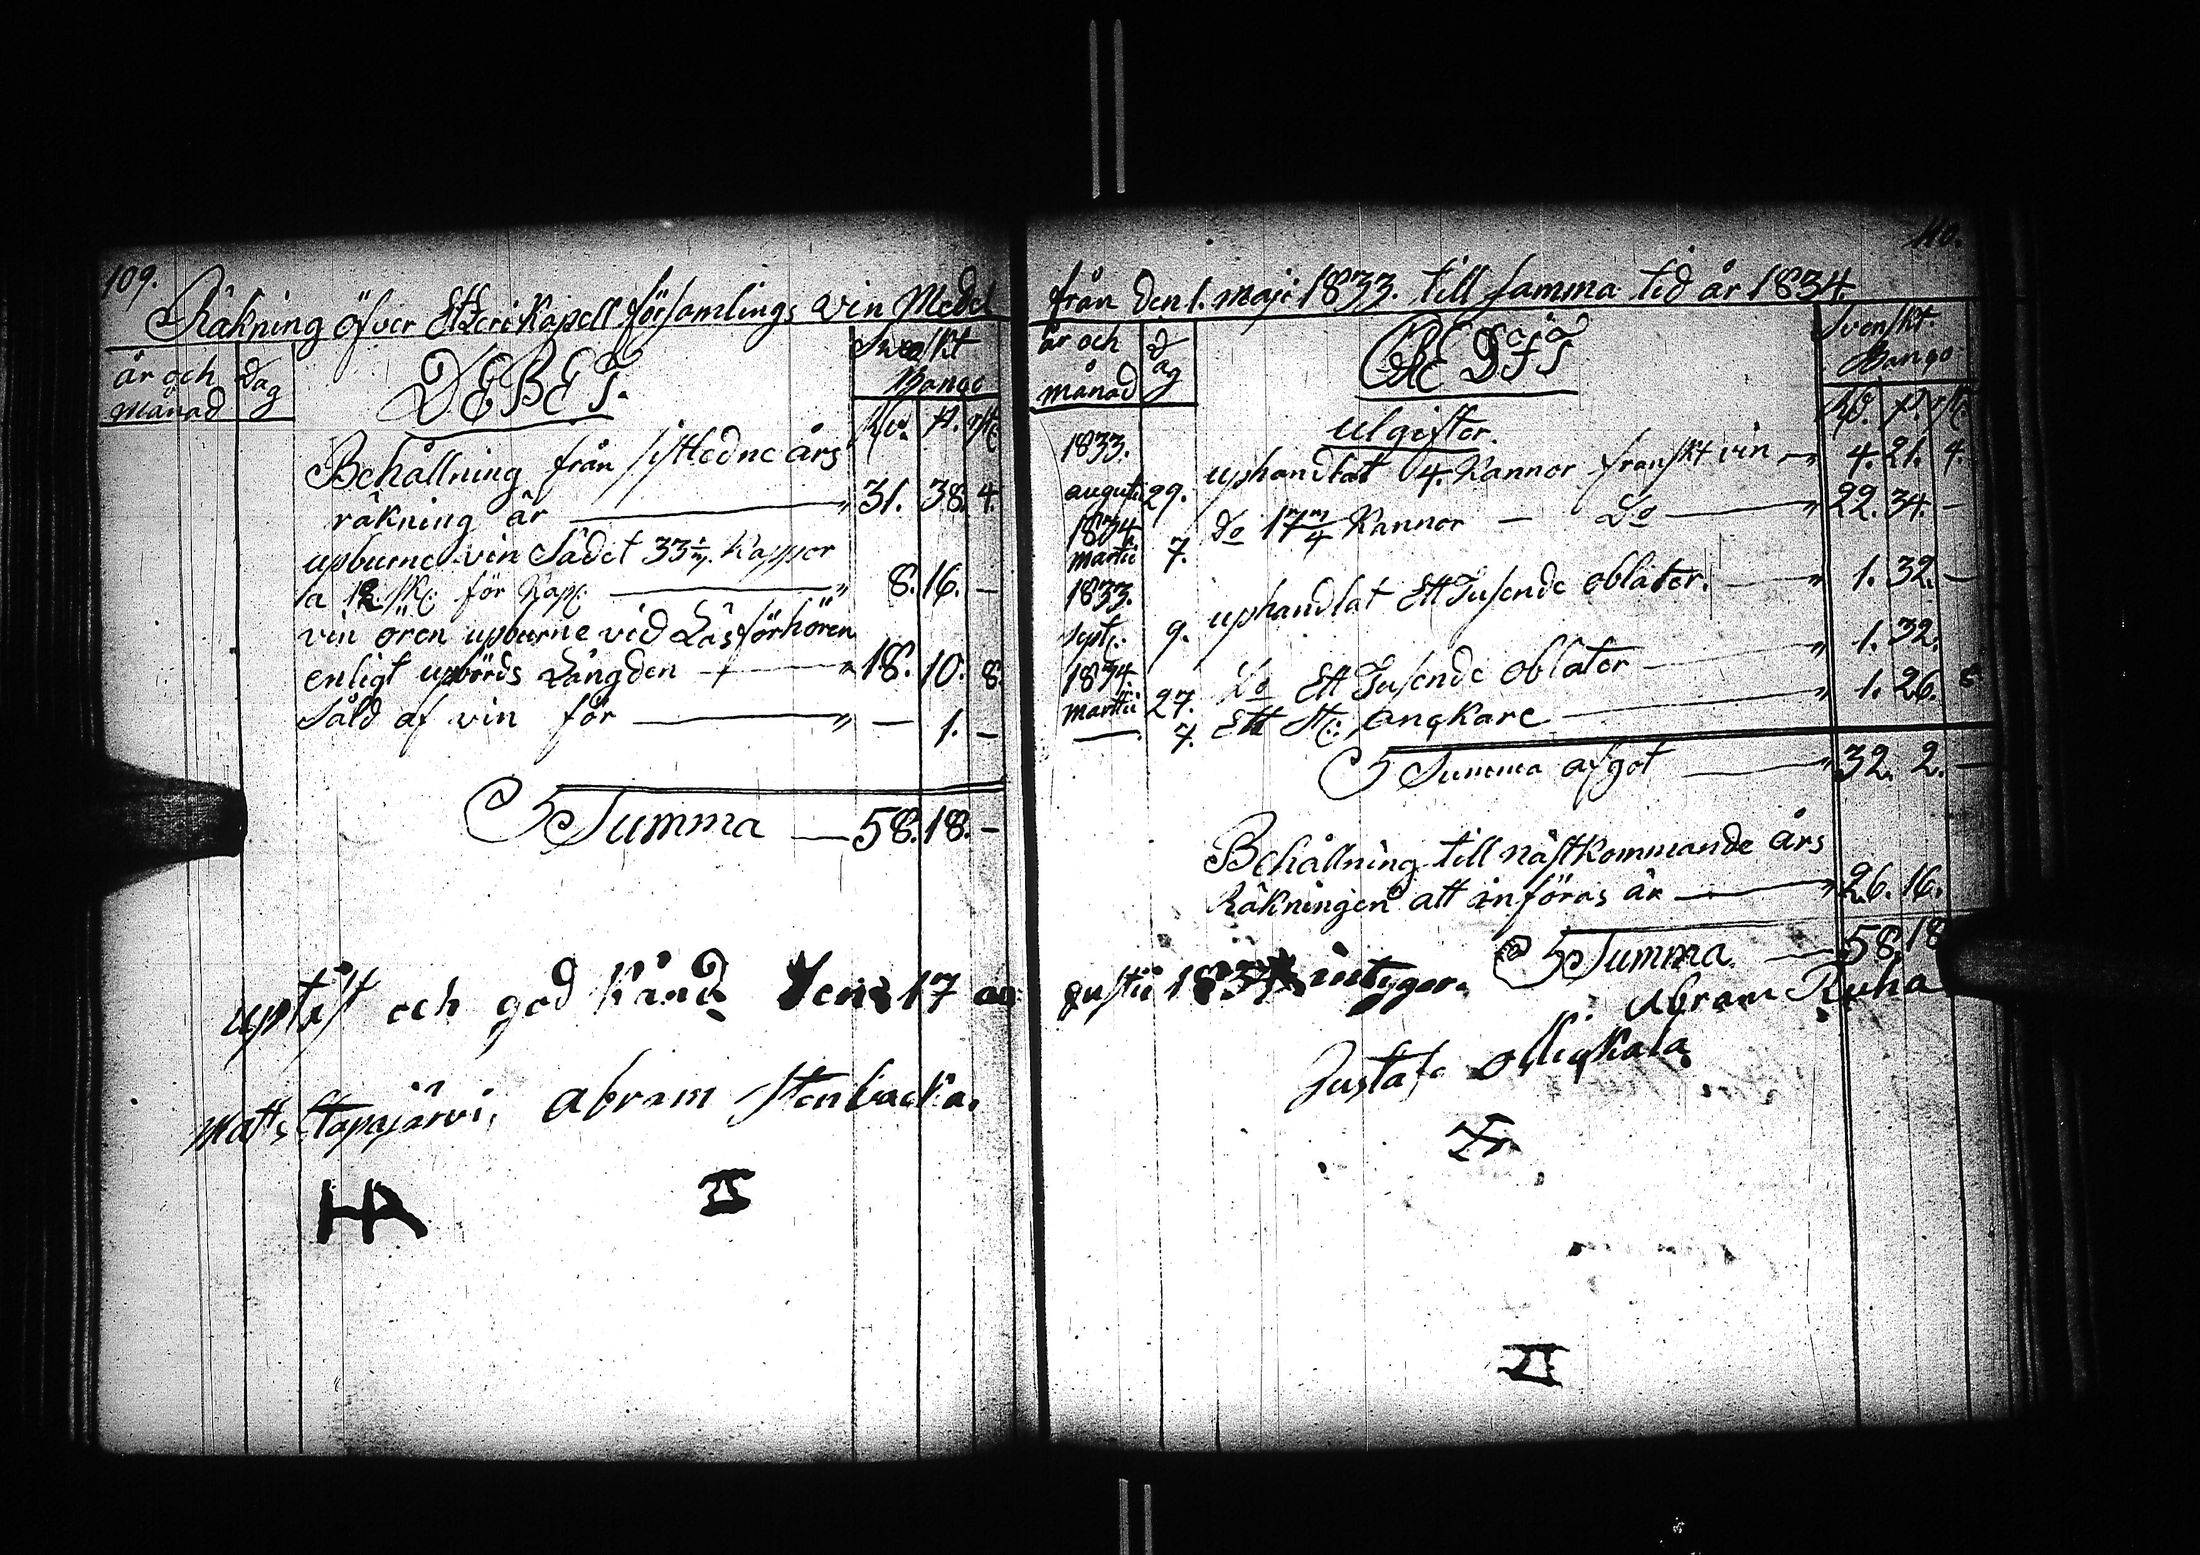 109.
Räkning öfver Etseri Kapell församlings vin Medel
år och månad
Dag
DEBET.
Svenskt
Banco
Rd. ß. rst.
Behållning från sistledne års
räkning är — 31. 38. 4.
upburne vin Sädet 33 1/2 Kappor
a 12 sk: för Kapp: — 8. 16. –
vin ören upburne vid Läsförhören
enligt upbörds Längden — 18. 10. 8.
Såld af vin för — – 1. –
Summa — 58. 18. –
upläst och god känd den 17 au
Matts Stapajärvi, Abram Stenbacka,
110.
från den 1. Maji 1833. till samma tid år 1834.
år och månad
Dag
CREDIT
Svenskt.
Banco
Rd. ß. rst.
utgifter.
1833.
augusti 29. uphandlat 4. Kannor franskt vin — 4. 21. 4.
1834
martii 7. do 17 3/4 Kannor — Do — 22. 34. –
1833.
Septe: 9. uphandlat Ett Tusende oblater. — 1. 32. –
1834.
martii 27. Do Ett Tusende oblater — 1. 32.
— 7. Ett St: angkare — 1. 26. 8
Summa afgot — 32. 2. –
Behållning till nästkommande års
Räkningen att införas är — 26. 16.
Summa. — 58. 18
gustii 1834 intygar.
Abram Ruha
Gustaf Ollinkala